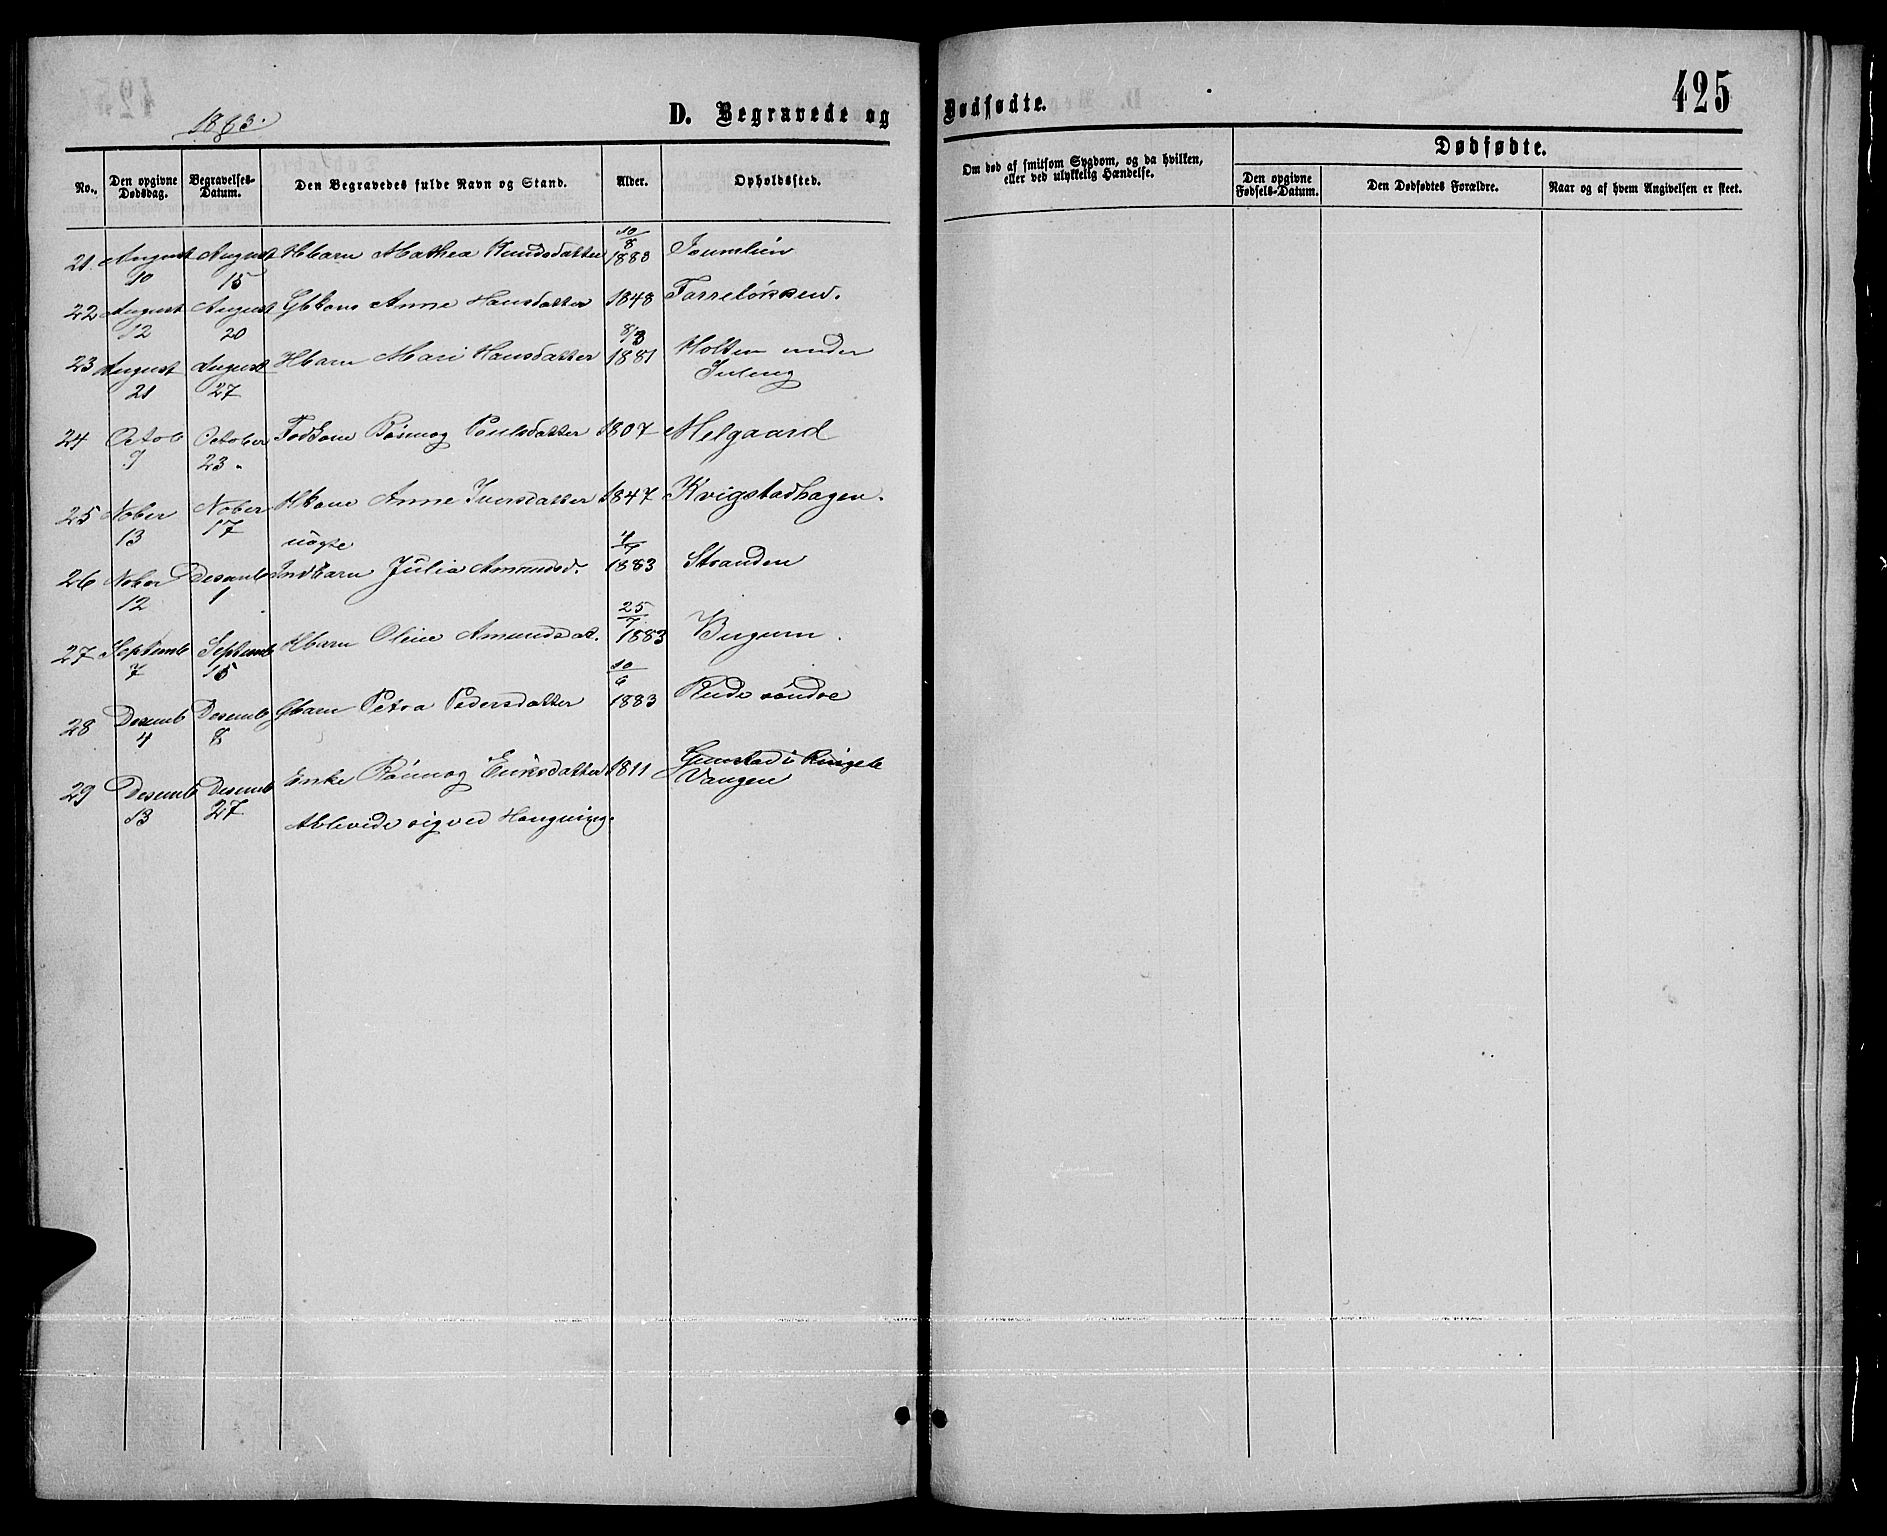 425
1883.
D. Begravede og Dødfødte.
No. Den opgivne Dødsdag. Begravelses-Datum. Den Begravedes fulde Navn og Stand. Alder. Opholdssted. Om død af smitsom Sygdom, og da hvilken, eller ved ulykkelig Hændelse.
Dødfødte.
Den opgivne Fødsels-Datum. Den Dødfødtes Forældre. Naar og af hvem Angivelsen er skeet.
21. August 10 August 15 Hbarn Mathea Knudsdatter 10/8 1883
22 August 12 August 20 Anne Hansdatter 1848 Torreløkken.
23 August 21 August 27 Hbarn Mari Hansdatter 8/3 1881 Holten under Juleng
24 Octob 9 October 23. Rønnog Poulsdatter 1807 Melgaard
25 Nober 13 Nober 17 Hkone Anne Iversdatter 1847 Kvigstadhagen.
26 Nober 12 Desemb 1 uægte Indbarn Julia Amundsd. 1883 Stranden
27 Septemb 7 Septemb 15 Hbarn Oline Amundsdat. 25/7 1883
28 Desemb 4 Desemb 8 Gbarn Petra Pedersdatter 10/6 1883 Rude søndre
29 Desemb 13 Desemb 27 Enke Rønnog Eriksdatter 1811 i Ringebu
Vangen
Ablevide sig ved Hængning.